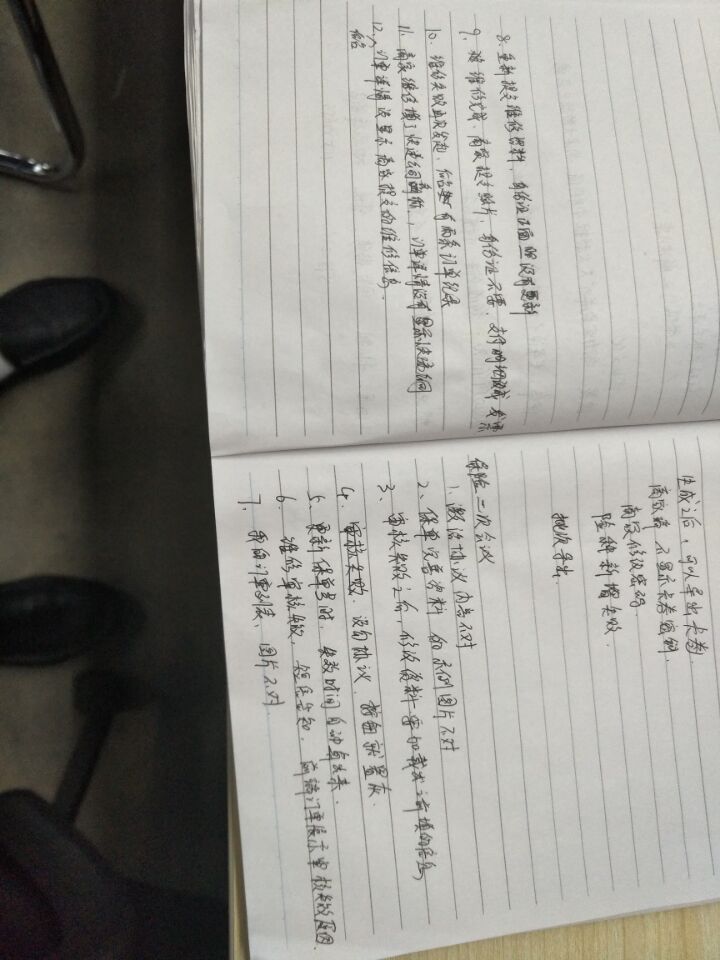 8. 重新提交维修资料，身份证正面照没有更新
9. 维修完成，商家提交照片，身份证不要，支付明细改成发票
10. 维修失败再次发起，后台有两条订单纪录
11. 商家维修填了快递公司，订单详情没有显示快递公司
12. 后台订单详情没显示商家提交的维修信息.
生成之后，可以导出卡券.
商家端 不显示卡券密码.
商家修改密码
险种新增失败.
批次导出.
保险二次会议
1. 激活协议内容不对
2. 保单完善资料 的示例图片不对
3. 审核失败之后，修改资料要加载出之前填的信息
4. 审核失败. 没勾协议，按钮就置灰.
5. 更新保单号时，失效时间自动算出来.
6. 维修审核失败，短信告知，前端订单展示审核失败原因.
7. 我的订单列表，图片不对.